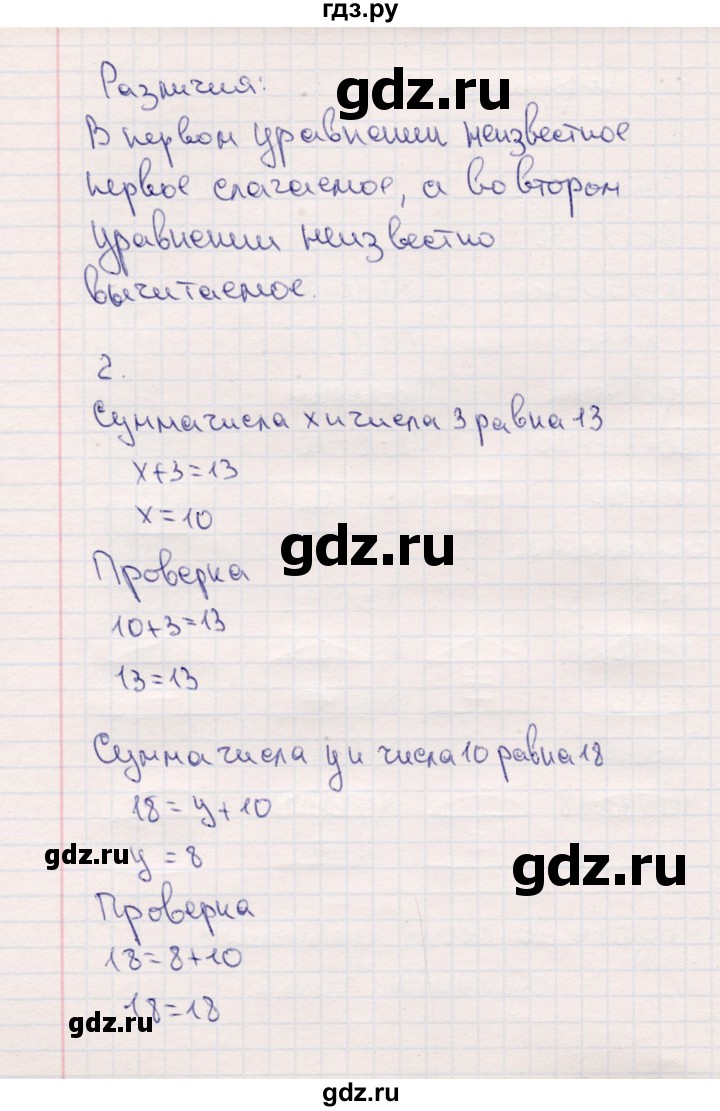 гдз.ру
Различия:
gdz.ru
В первом уравнении неизвестное
первое слагаемое, а во втором
уравнении неизвестно
вычитаемое.
2.
Сумма числа х и числа 3 равна 13
х+3=13
х=10
gdz.ru
Проверка
10+3=13
13=13
Сумма числа у и числа 10 равна 18
18=у+10
gdz.ru
у=8
gdz.ru
Проверка
18=8+10
18=18
gdz.ru
gdz.ru